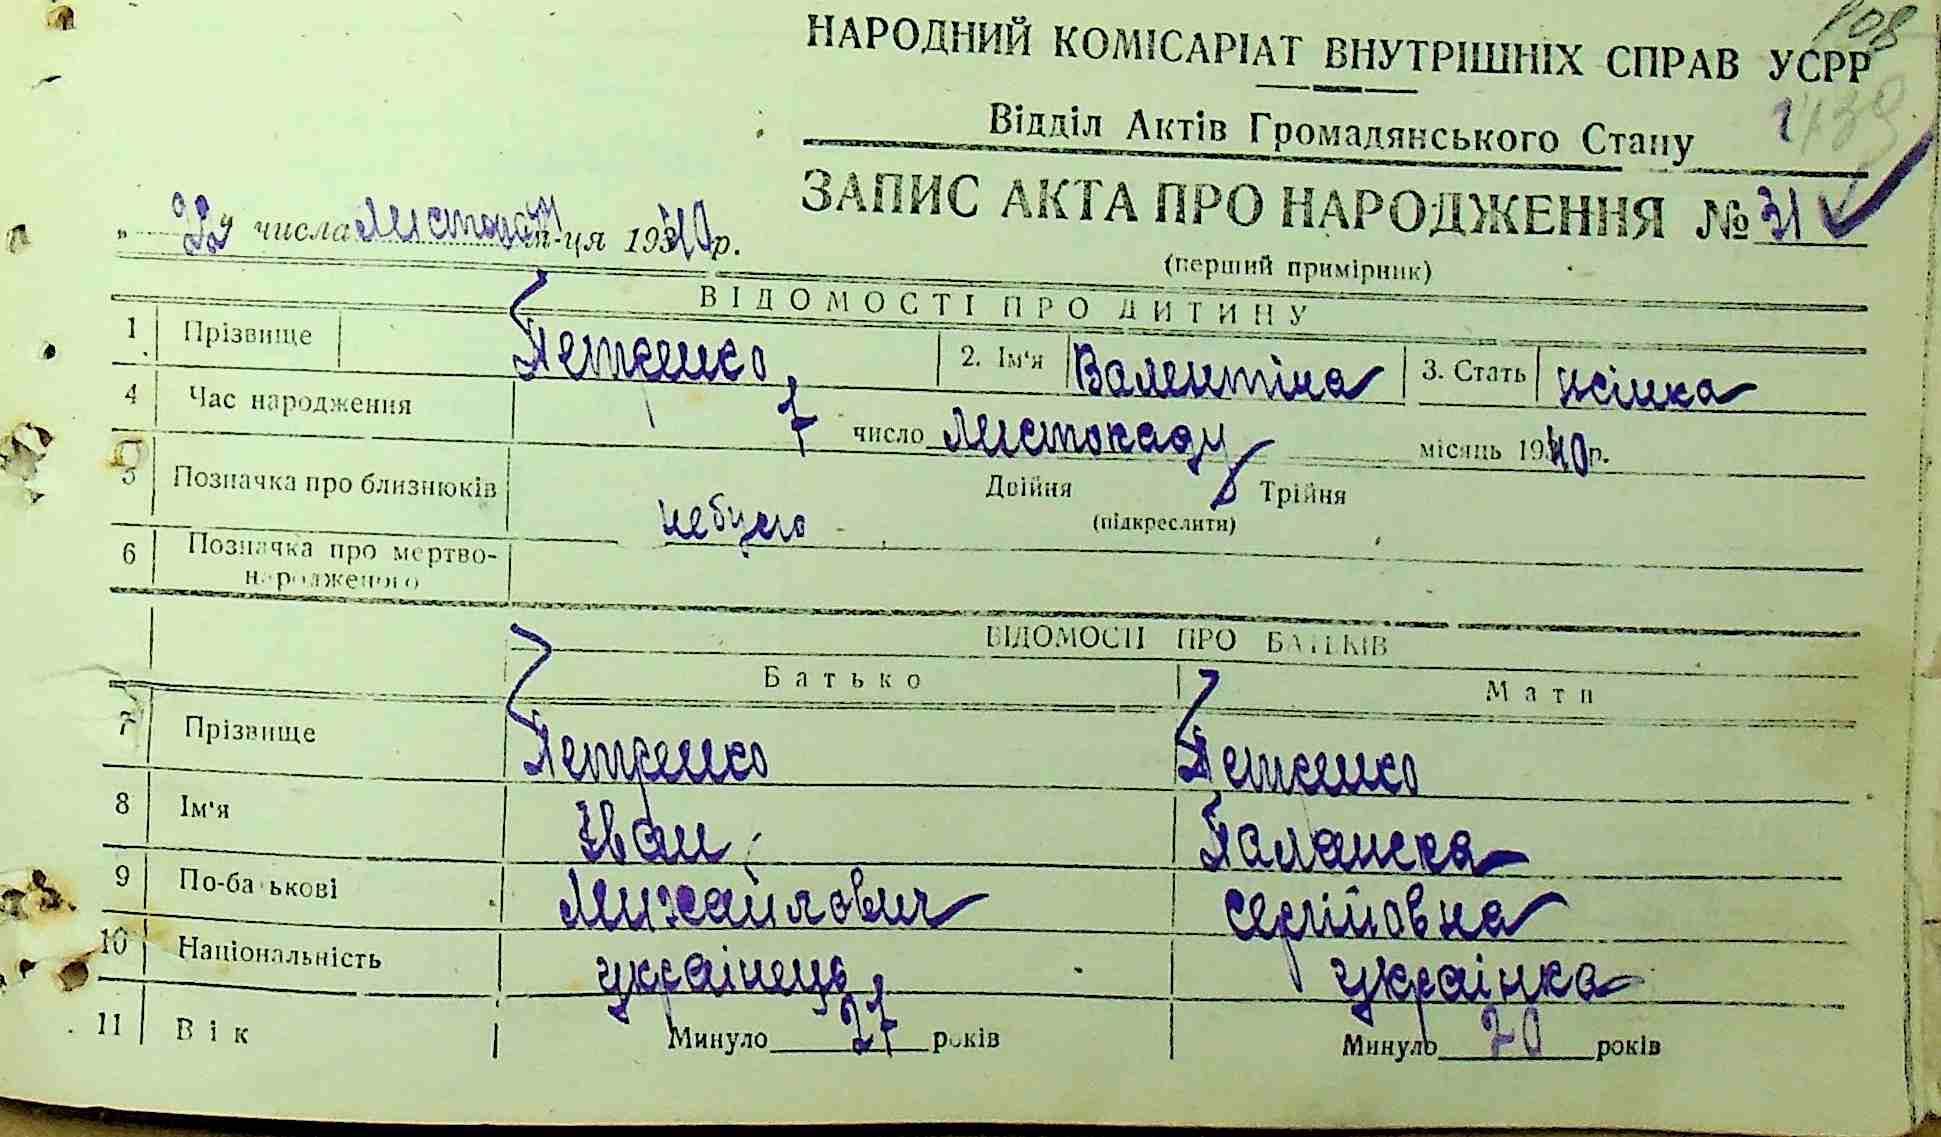 108
НАРОДНИЙ КОМІСАРІАТ ВНУТРІШНІХ СПРАВ УСРР
Відділ Актів Громадянського Стану
439
ЗАПИС АКТА ПРО НАРОДЖЕННЯ № 31
(перший примірник)
числа листопад м-ця 1940 р.
ВІДОМОСТІ ПРО ДИТИНУ
1 Прізвище Петренко 2. Ім'я Валентіна 3. Стать жінка
4 Час народження 7 число листопаду місяць 1940 р.
5 Позначка про близнюків Двійня Трійня
небуло (підкреслити)
6 Позначка про мертво-
народженого
ВІДОМОСТІ ПРО БАТЬКІВ
Батько Мати
7 Прізвище Петренко Петренко
8 Ім'я Іван Паланска
9 По-батькові Михайлович Сергійовна
10 Національність українець українка
11 Вік Минуло 27 років Минуло 20 років